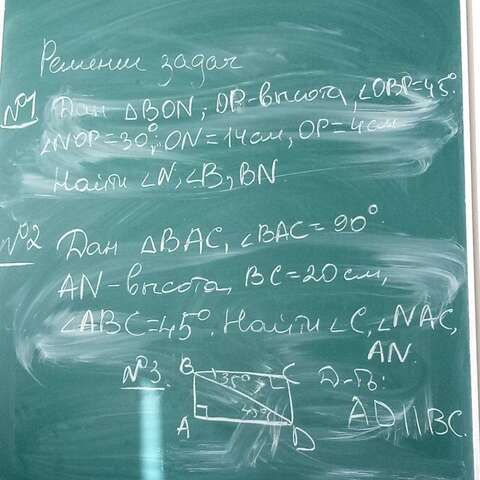 Решение задач
№1 Дан △BON, OP-высота, ∠OBP=45°.
∠NOP=30°, ON=14см, OP=4см
Найти ∠N, ∠B, BN.
№2 Дан △BAC, ∠BAC=90°
AN-высота, BC=20см,
∠ABC=45°. Найти ∠C, ∠NAC,
AN
№3. B C Д-ть:
A D AD||BC.